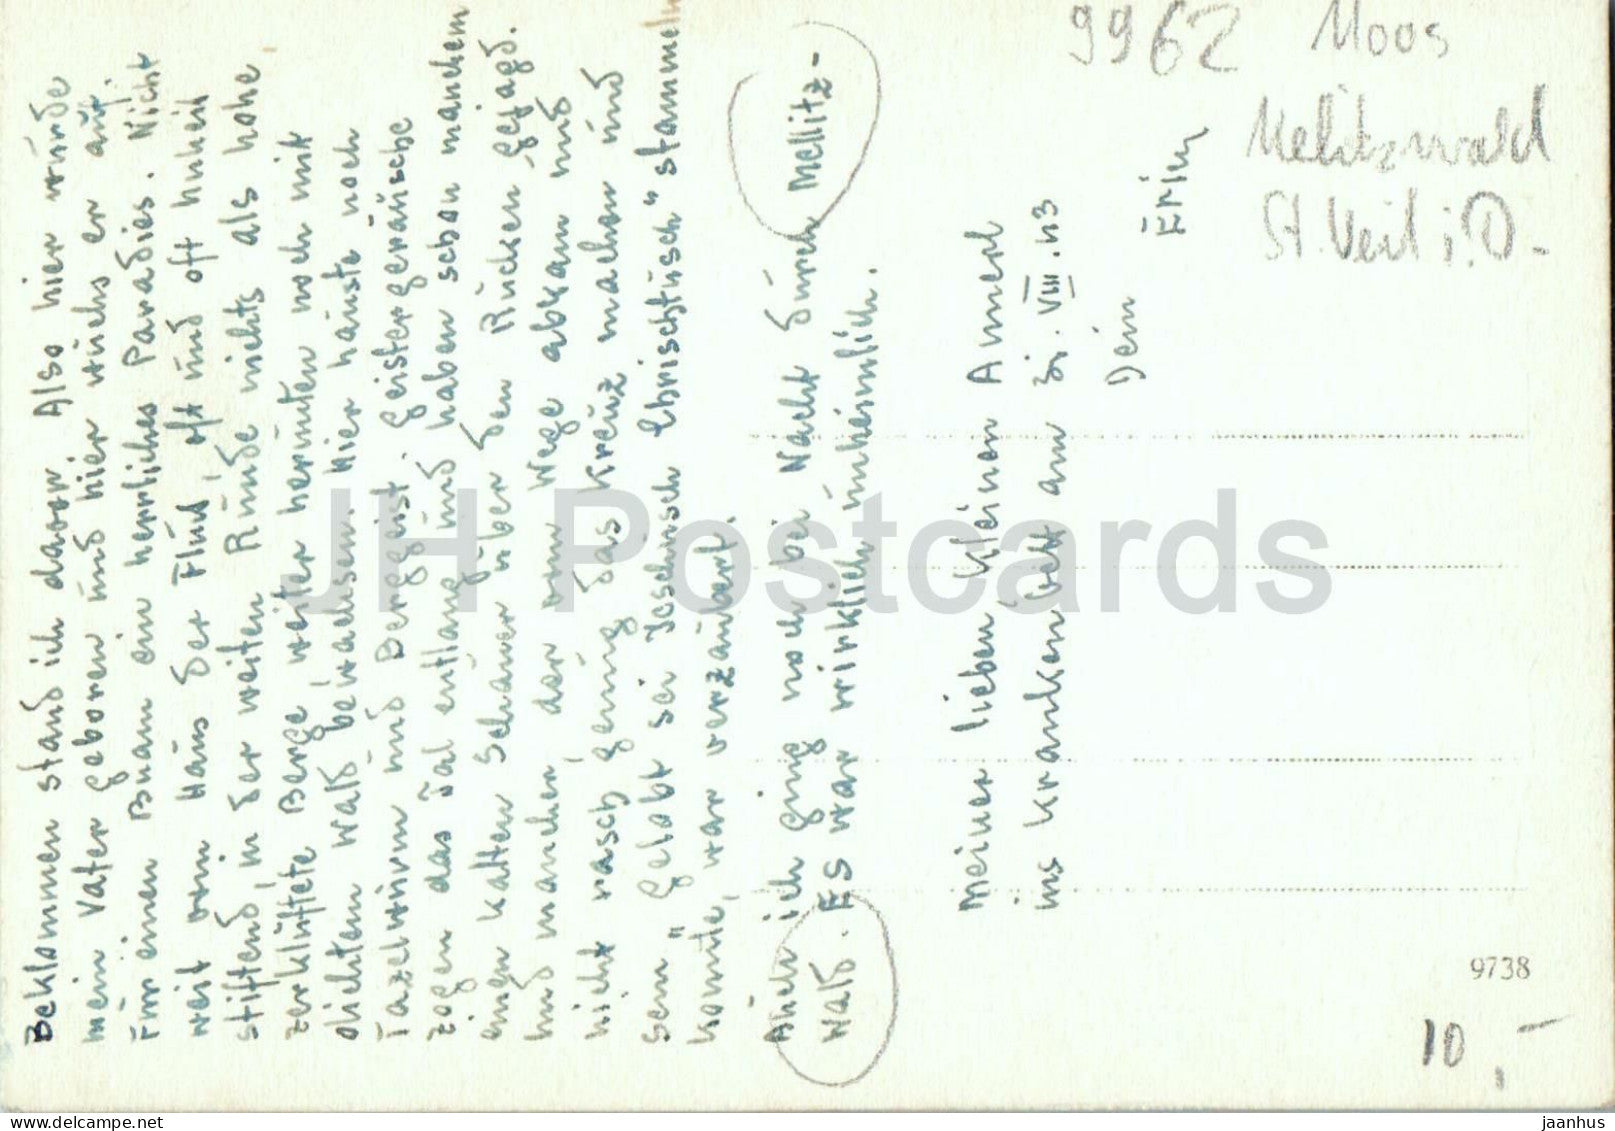 Beklommen stand ich davor. Also hier würde
mein Vater geboren und hier wuchs er auf.
Für einen Buam ein herrliches Paradies. Nicht
weit vom Haus der Flüd, oft und oft unheil
stiftend, in der weiten Runde nichts als hohe,
zerklüftete Berge, weiter herunten noch mit
dichtem Wald bewachsen. Hier hauste noch
Tazelwurm und Berggeist. Geistergeräusche
zogen das Tal entlang und haben schon manchem
einen kalten Schauer über den Rücken gejagd.
Und mancher, der vom Wege abkam und
nicht rasch genug das Kreuz machen und
sein "Gelobt sei Jeschusch Chrischtusch" stammeln
konnte, war verzaubert.
Auch ich ging noch bei Nacht durch Mellitz-
wald. Es war wirklich unheimlich.
Meiner lieben kleinen Annerl
ins Krankenbett am 31. VIII. 43
Dein
9962 Moos
Melitzwald
St. Veit i. D.
9738
10,-
JH Postcards
jaanhus